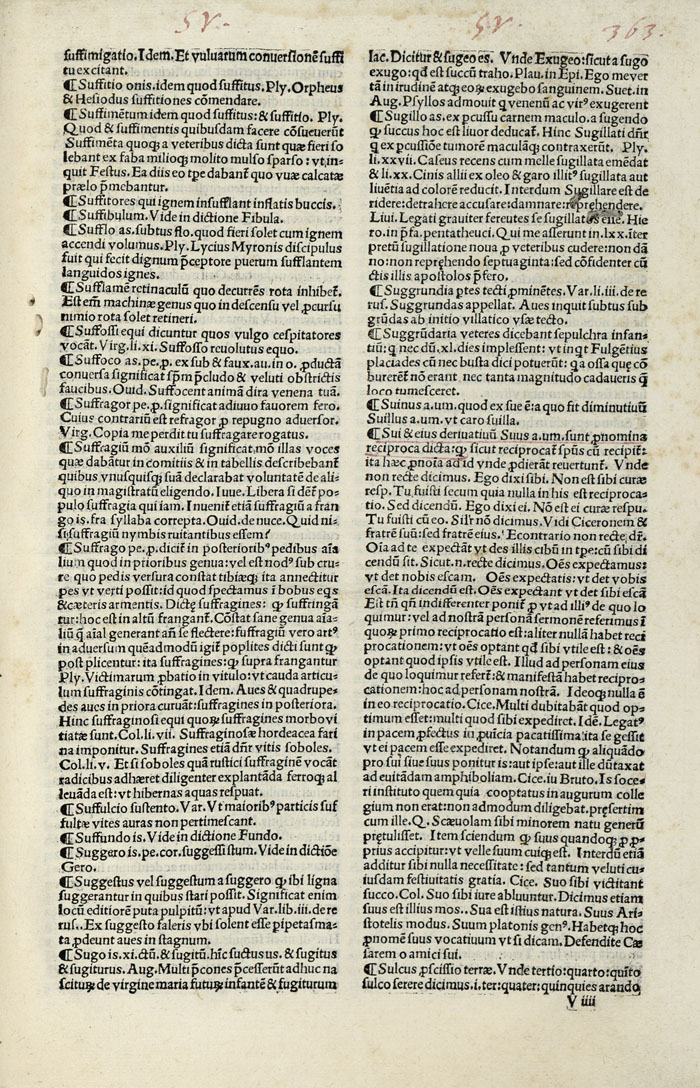 SV.
SV.
363.
suffimigatio. Idem. Et vuluarum conversionē suffi
tu excitant.
¶ Suffitio onis. idem quod suffitus. Ply. Orpheus
& Hesiodus suffitiones cōmendare.
¶ Suffimētum idem quod suffitus: & suffitio. Ply.
Quod & suffimentis quibusdam facere cōsueuerūt
Suffimēta quoqꝫ a veteribus dicta sunt quæ fieri so
lebant ex faba milioqꝫ molito mulso sparso: vt, in-
quit Festus. Ea diis eo tpe dabant̄ quo vuæ calcatæ
prælo p̄mebantur.
¶ Suffitores qui ignem insufflant inflatis buccis.
¶ Suffibulum. Vide in dictione Fibula.
¶ Sufflo as. subtus flo. quod fieri solet cum ignem
accendi volumus. Ply. Lycius Myronis discipulus
fuit qui fecit dignum p̄ceptore puerum sufflantem
languidos ignes.
¶ Sufflamē retinaculū quo decurrēs rota inhibet̄.
Est em̄ machinæ genus quo in descensu vel ꝑcursu
nimio rota solet retineri.
¶ Suffossi equi dicuntur quos vulgo cespitatores
vocāt. Virg. li. xi. Suffosso reuolutus equo.
¶ Suffoco as. pe. ꝓ. ex sub & faux. au. in o. ꝓductā
conuersa significat sp̄m p̄cludo & veluti obstrictis
faucibus. Ouid. Suffocent animā dira venena tuā.
¶ Suffragor pe. ꝓ. significat adiuuo fauorem fero.
Cuius contrariū est refragor ꝓ repugno adversor.
Virg. Copia me perdit tu suffragare rogatus.
¶ Suffragiū mō auxiliū significat, mō illas voces
quæ dabātur in comitiis & in tabellis describebant̄
quibus vnusquisqꝫ suā declarabat voluntatē de ali-
quo in magistratū eligendo. Iuue. Libera si dent̄ po-
pulo suffragia qui iam. Inuenit̄ etiā suffragiū a fran
go is. fra syllaba correpta. Ouid. de nuce. Quid ni-
si suffragiū nymbis ruitantibus essem?
¶ Suffrago pe. ꝓ. dicit̄ in posterioribꝰ pedibus aīa
lium quod in prioribus genua: vel est nodꝰ sub cru-
re quo pedis versura constat tibiæqꝫ ita annectitur
pes vt verti possit: id quod spectamus ī bobus eqs
& cæteris armentis. Dictę suffragines: q̄ suffringā
tur: hoc est in altū frangant̄. Cōstat sane genua aīa-
liū q̄ aīal generant an̄ se flectere: suffragiū vero artꝰ
in adversum quēadmodū igit̄ poplites dicti sunt qꝫ
post plicentur: ita suffragines: qꝫ supra frangantur
Ply. Victimarum ꝓbatio in vitulo: vt cauda articu-
lum suffraginis cōtingat. Idem. Aues & quadrupe-
des aues in priora curuāt: suffragines in posteriora.
Hinc suffraginosi equi quoꝝ suffragines morbo vi
tiatæ sunt. Col. li. vii. Suffraginosæ hordeacea fari
na imponitur. Suffragines etiā dn̄r vitis soboles.
Col. li. v. Et si soboles quā rustici suffraginē vocāt
radicibus adhæret diligenter explantāda ferroqꝫ al
leuāda est: vt hibernas aquas respuat.
¶ Suffulcio sustento. Var. Vt maioribꝰ particis suf
fultæ vites auras non pertimescant.
¶ Suffundo is. Vide in dictione Fundo.
¶ Suggero is. pe. cor. suggessi stum. Vide in dictiōe
Gero.
¶ Suggestus vel suggestum a suggero qꝫ ibi ligna
suggerantur in quibus stari possit. Significat enim
locū editiorē puta pulpitū: vt apud Var. lib. iii. de re
rus.. Ex suggesto faleris vbi solent esse pipetasma-
ta ꝓdeunt aues in stagnum.
¶ Sugo is. xi. ctū. & sugitū. hic suctus us. & sugitus
& sugiturus. Aug. Multi p̄cones p̄cesserūt adhuc na
scituꝝ de virgine maria futuꝝ infantē & fugiturum
lac. Dicitur & sugeo es. Vnde Exugeo: sicut a sugo
exugo: qd̄ est succū traho. Plau. in Epi. Ego me ver
tā in irudinē atqꝫ eoꝝ exugebo sanguinem. Suet. in
Aug. Psyllos admouit q venenū ac virꝰ exugerent
¶ Sugillo as. ex ꝑcussu carnem maculo. a sugendo
qꝫ succus hoc est liuor deducat̄. Hinc Sugillati dn̄r
q ex ꝑcussiōe tumorē maculāqꝫ contraxerūt. Ply.
li. xxvii. Caseus recens cum melle sugillata emēdat
& li. xx. Cinis allii ex oleo & garo illitꝰ sugillata aut
liuētia ad colorē reducit. Interdum Sugillare est de
ridere: detrahere accusare: damnare: reprehendere.
Liui. Legati grauiter ferentes se sugillatos esse. Hie
ro. in p̄fa. pentatheuci. Qui me asserunt in. lxx. iter
pretū sugillatione noua ꝓ veteribus cudere: non dā
no: non reprehendo septuaginta: sed cōfidenter cū
ctis illis apostolos p̄fero.
¶ Suggrundia ptes tecti ꝓminētes. Var. li. iii. de re
rus. Suggrundas appellat. Aues inquit subtus sub
grūdas ab initio villatico vsæ tecto.
¶ Suggrūdaria veteres dicebant sepulchra infan-
tiū: q̄ nec dū. xl. dies implessent: vt inqt Fulgētius
placiades cū nec busta dici potuerūt: qa ossa quę cō
burerēt nō erant, nec tanta magnitudo cadaueris q̄
loco tumesceret.
¶ Suinus a. um. quod ex sue ē: a quo fit diminutiuū
Suillus a. um. vt caro suilla.
¶ Sui & eius deriuatiuū Suus a. um. sunt ꝓnomina
reciproca dicta: qꝫ sicut reciprocat̄ sp̄us cū recipit̄:
ita hæc ꝓnoīa ad id vnde ꝓdierāt reuertunt̄. Vnde
non recte dicimus. Ego dixi sibi. Non est sibi curæ
resp. Tu fuisti secum quia nulla in his est reciproca-
tio. Sed dicendū. Ego dixi ei. Nō est ei curæ respu.
Tu fuisti cū eo. Silr̄ nō dicimus. Vidi Ciceronem &
fratrē suū: sed fratrē eius. Econtrario non recte dr̄.
Oīa ad te expectāt vt des illis cibū in tpe: cū sibi di
cendū sit. Sicut. n. recte dicimus. Oēs expectamus:
vt det nobis escam. Oēs expectatis: vt det vobis
escā. Ita dicendū est. Oēs expectant vt det sibi escā
Est tn̄ qn̄ indifferenter ponit̄ ꝓ vt ad illiꝰ de quo lo
quimur: vel ad nostrā personā sermonē referimus ī
quoꝝ primo reciprocatio est: aliter nullā habet reci
procationem: vt oēs optant qd̄ sibi vtile est: & oēs
optant quod ipsis vtile est. Illud ad personam eius
de quo loquimur refert̄: & manifestā habet recipro-
cationem: hoc ad personam nostrā. Ideoqꝫ nulla ē
in eo reciprocatio. Cice. Multi dubitabāt quod op-
timum esset: multi quod sibi expediret. Idē. Legatꝰ
in pacem ꝓfectus in ꝓuīcia pacatissima: ita se gessit
vt ei pacem esse expediret. Notandum qꝫ aliquādo
pro sui siue suus ponitur is: aut ipse: aut ille dūtaxat
ad euitādam amphiboliam. Cice. iu Bruto. Is soce-
ri instituto quem quia cooptatus in augurum colle
gium non erat: non admodum diligebat, pręsertim
cum ille. Q. Scæuolam sibi minorem natu generū
prętulisset. Item sciendum qꝫ suus quandoqꝫ ꝓ ꝓ-
prius accipitur: vt velle suum cuiqꝫ est. Interdū etiā
additur sibi nulla necessitate: sed tantum veluti cu-
iusdam festiuitatis gratia. Cice. Suo sibi victitant
succo. Col. Suo sibi iure abluuntur. Dicimus etiam
suus est illius mos.. Sua est istius natura. Suus Ari-
stotelis modus. Suum platonis genꝰ. Habetqꝫ hoc
ꝓnomē suus vocatiuum vt si dicam. Defendite Cæ
sarem o amici sui.
¶ Sulcus ꝓscissio terræ. Vnde tertio: quarto: quīto
sulco serere dicimus. i. ter: quater: quinquies arando
V iiii